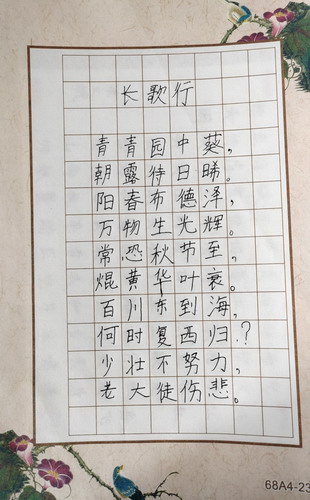 长歌行
青青园中葵，
朝露待日晞。
阳春布德泽，
万物生光辉。
常恐秋节至，
焜黄华叶衰。
百川东到海，
何时复西归？
少壮不努力，
老大徒伤悲。
68A4-23